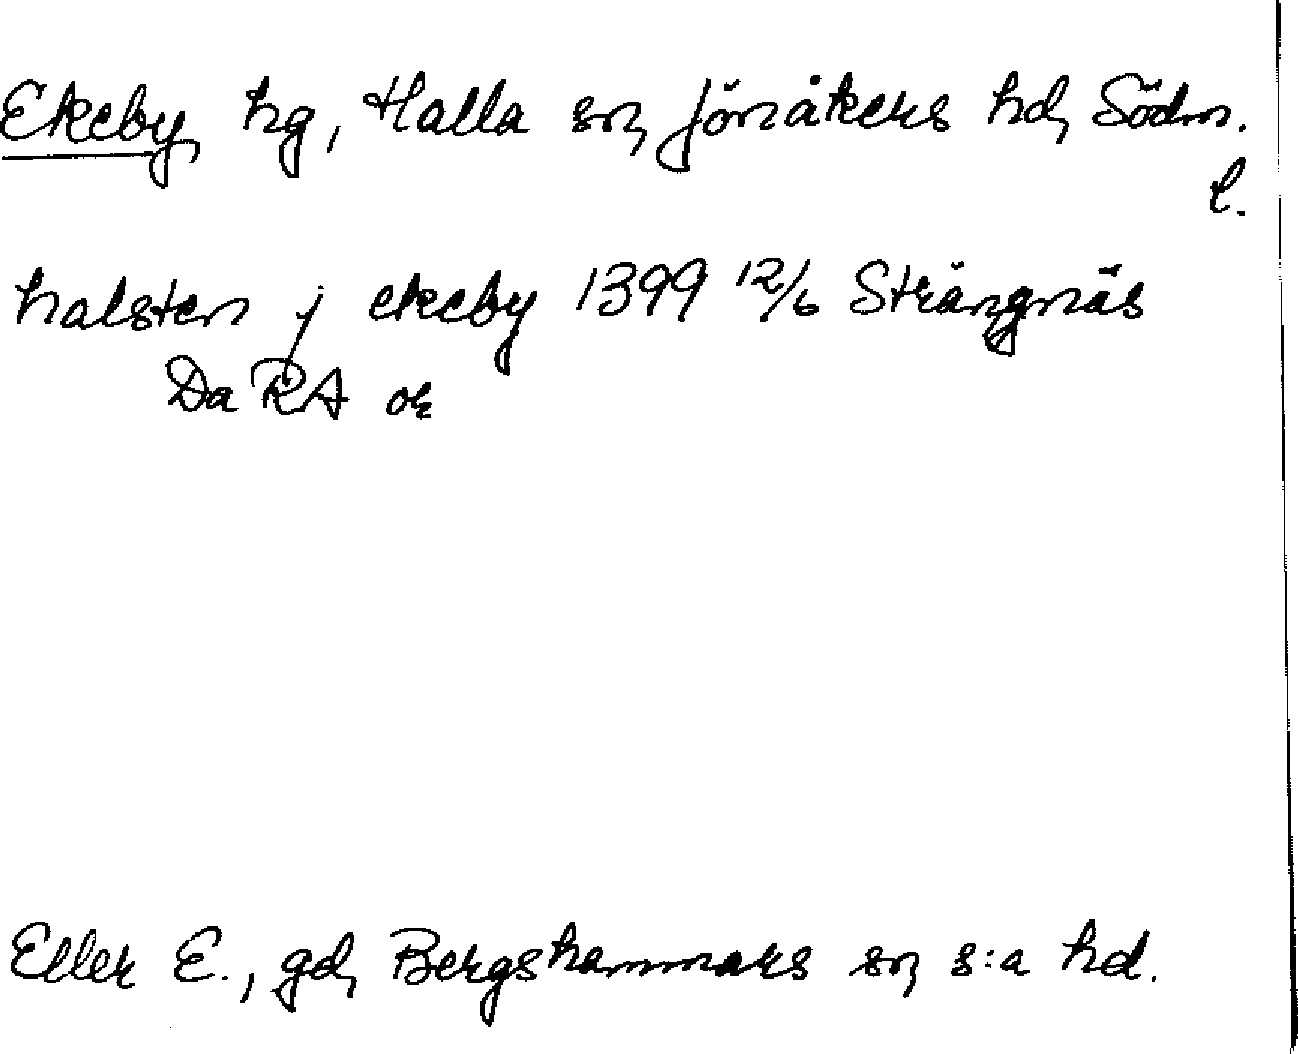 Ekeby, hg, Halla sn, Jönåkers hd, Södm.
l.
halsten j ekeby 1399 12/6 Strängnäs
Da RA or
Eller E., gd, Bergshammars sn, s:a hd.